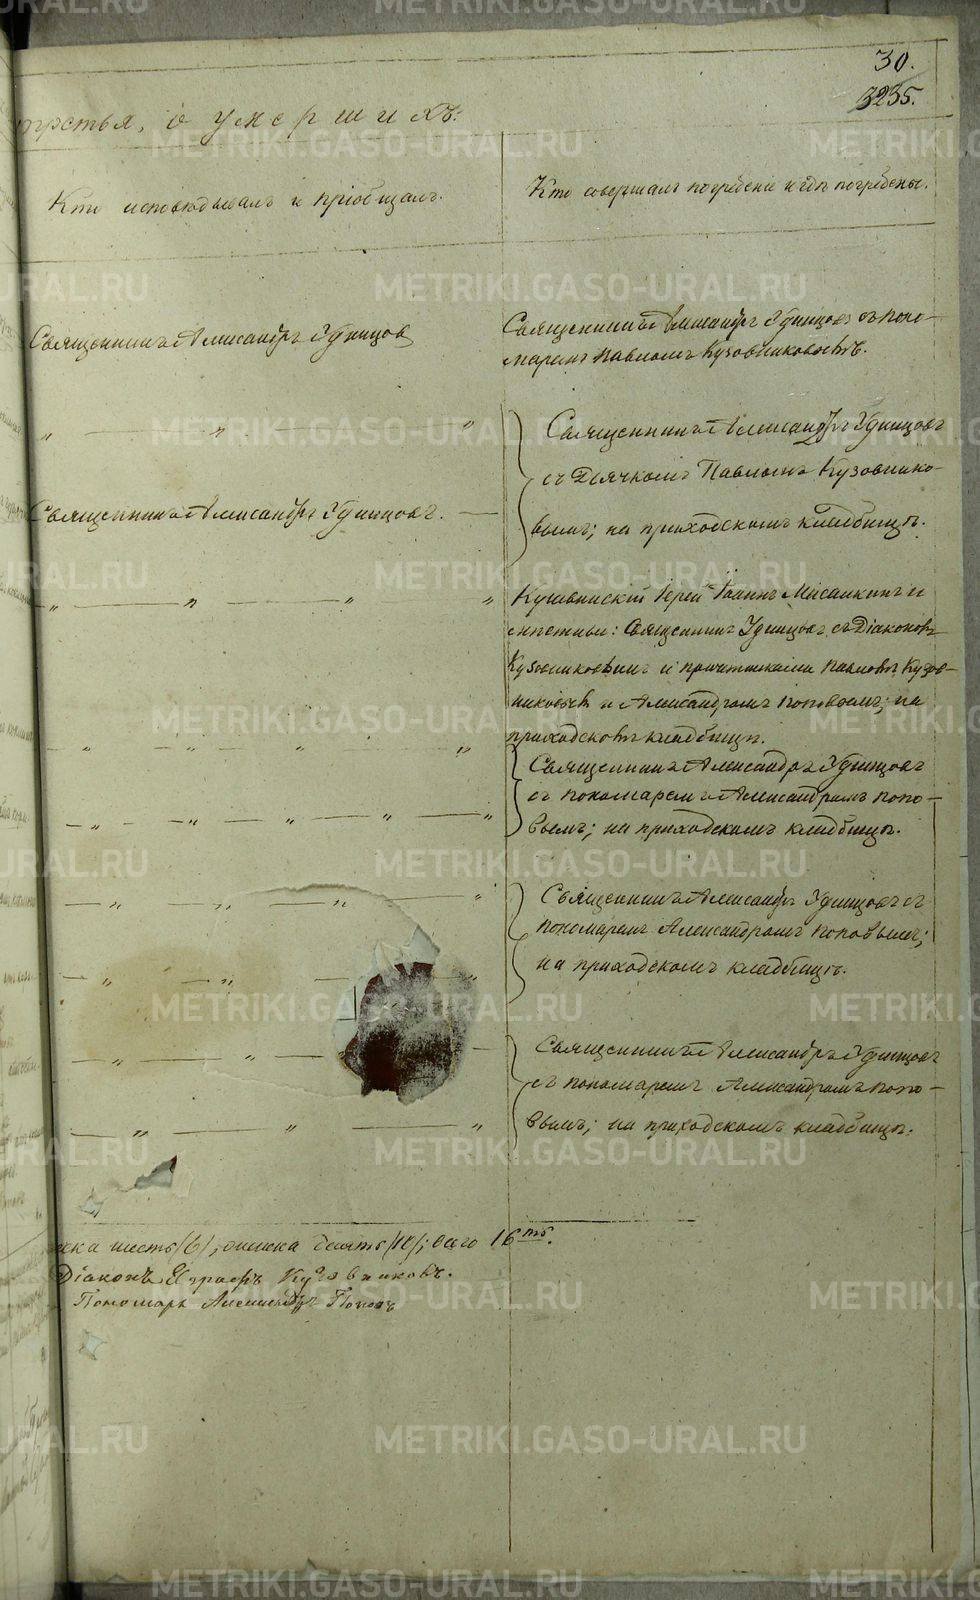 30.
3235.
третья, о умершихъ.
Кто исповѣдывалъ и пріобщалъ.
Кто совершалъ погребеніе и гдѣ погребены.
Священникъ Александръ Удинцов
Священникъ Александръ Удинцовъ съ поно-
маремъ Павломъ Кузовниковымъ.
" " "
Священникъ Александръ Удинцовъ
съ Дьячкомъ Павломъ Кузовнико-
вымъ; на приходскомъ кладбищѣ.
Священникъ Александръ Удинцовъ.
" " " "
Кушвинскій Іерей Іоаннъ
Священникъ Удинцовъ съ Діакономъ
Кузовниковымъ и причетниками Павломъ Кузов-
никовымъ и Александромъ Поповымъ; на
приходскомъ кладбищѣ.
" " " "
Священникъ Александръ Удинцовъ
съ пономаремъ Александромъ Попо-
вымъ; на приходскомъ кладбищѣ.
" " " " "
Священникъ Александръ Удинцовъ съ
пономаремъ Александромъ Поповымъ;
на приходскомъ кладбищѣ.
" " " "
" "
Священникъ Александръ Удинцовъ
съ пономаремъ Александромъ Попо-
вымъ; на приходскомъ кладбищѣ.
" "
" " "
шесть /6/, десять /10/; всего 16ть.
Діаконъ Кузовниковъ.
Пономарь Александръ Поповъ
METRIKI.GASO-URAL.RU